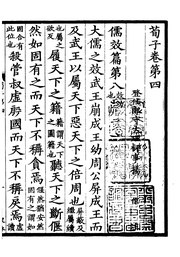 荀子卷第四
登仕郎守大理評事楊
儒效篇第八
大儒之效武王崩成王幼周公屏成王而
及武王以屬天下惡天下之倍周也
履天下之籍聽天下之斷偃
然如固有之而天下不稱貪焉
殺管叔虛殷國而天下不稱戾焉